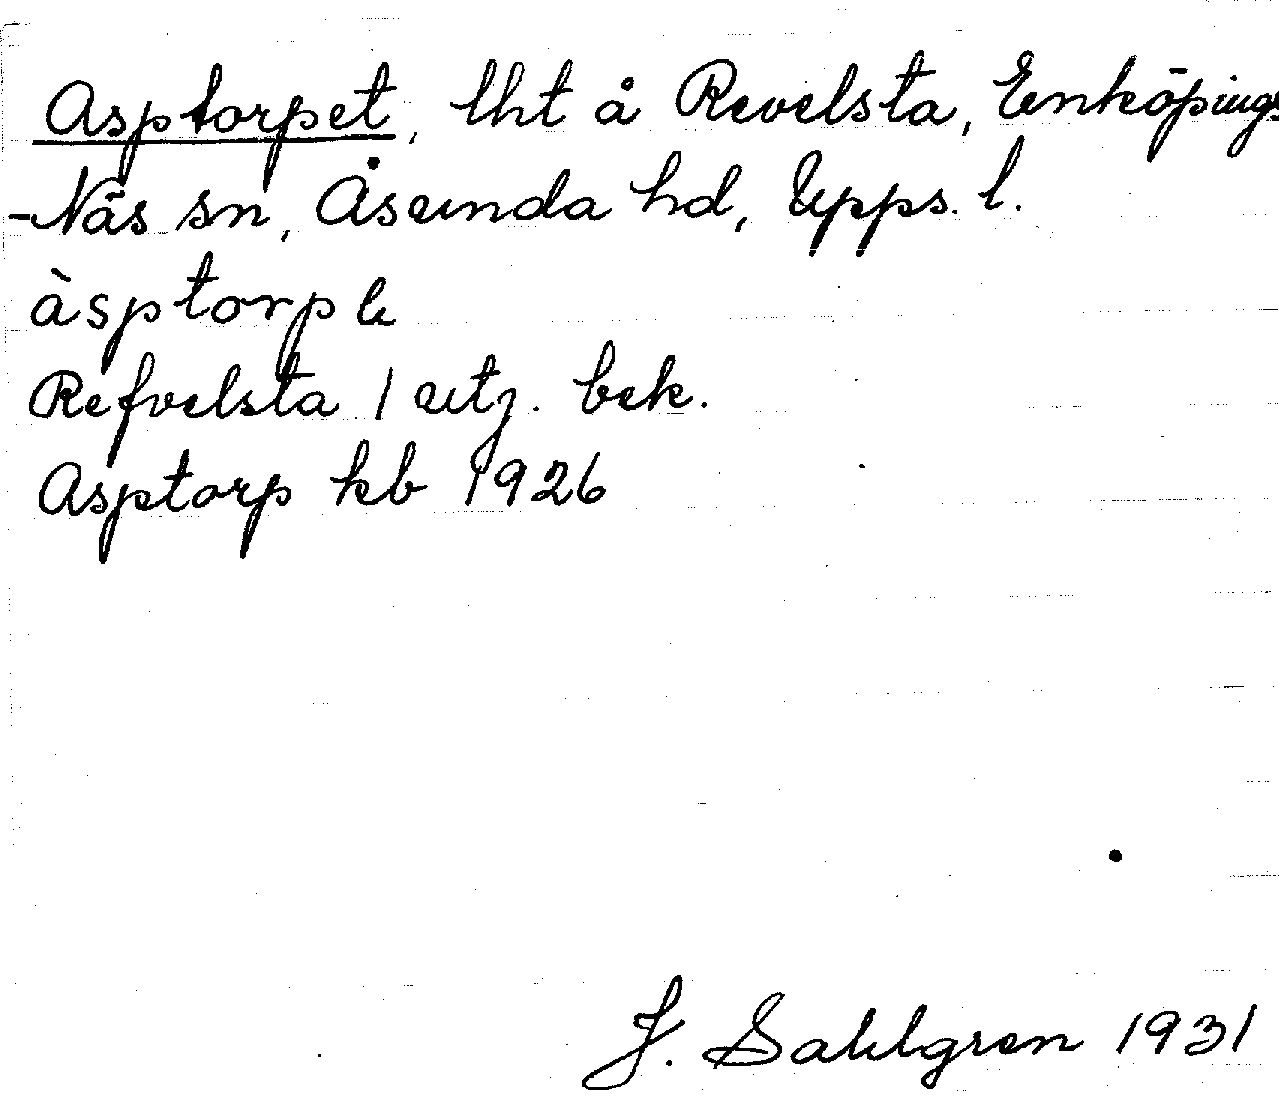 Asptorpet, lht å Revelsta, Enköpings
-Näs sn, Åsunda hd, Upps. l.
àsptorp
Refvelsta 1 utj. bek.
Asptorp kb 1926
J. Sahlgren 1931